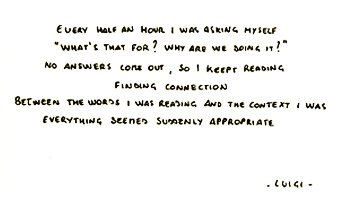 EVERY HALF AN HOUR I WAS ASKING MYSELF
"WHAT'S THAT FOR? WHY ARE WE DOING IT?"
NO ANSWERS COME OUT, SO I KEEPT READING
FINDING CONNECTION
BETWEEN THE WORDS I WAS READING AND THE CONTEXT I WAS
EVERYTHING SEEMED SUDDENLY APPROPRIATE
- LUIGI -